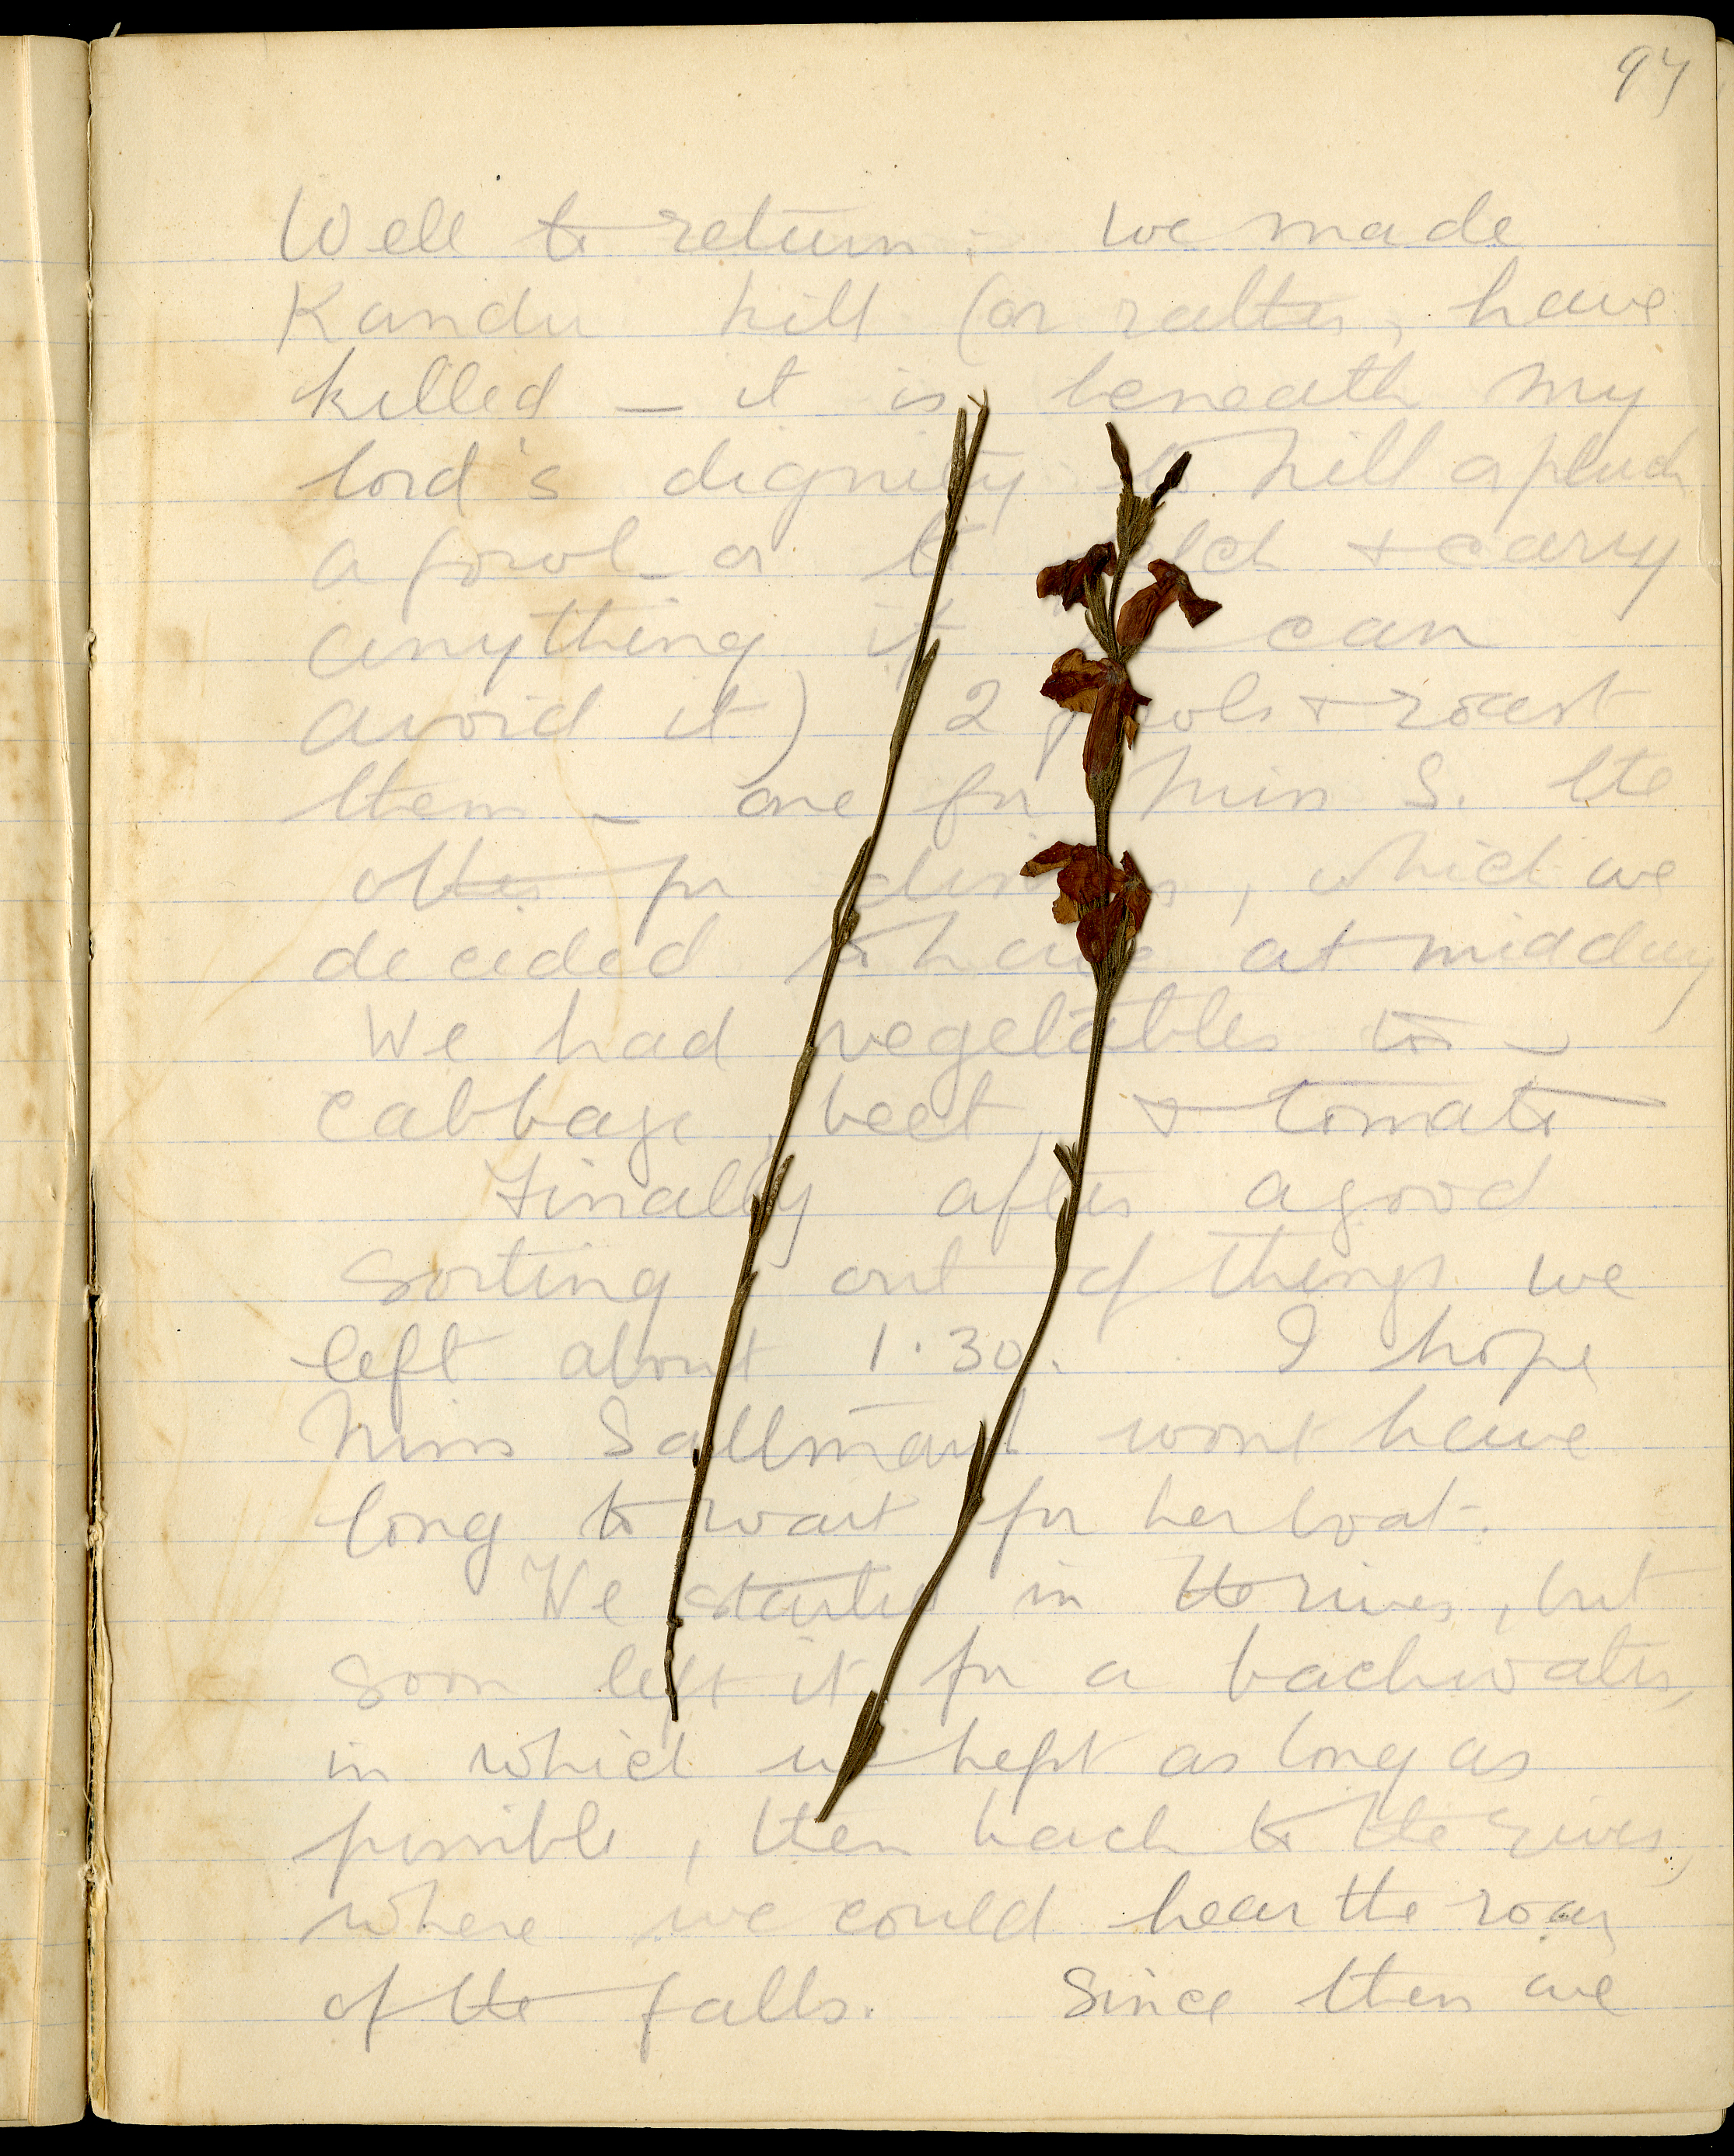 97
Well to return: we made
Kandu kill (or rather, have
killed — it is beneath my
lord's dignity to kill or pluck
a fowl — or to & carry
anything if can
avoid it) 2 fowls & roast
them — one for Miss S. the
other for dinner, which we
decided to have at midday
We had vegetables too —
cabbage, beet, & tomato
Finally after a good
sorting out of things we
left about 1.30. I hope
Miss Saltmarsh wont have
long to wait for her boat.
We started in the river, but
soon left it for a backwater,
in which we kept as long as
possible, then back to the river,
where we could hear the roar
of the falls. Since then we